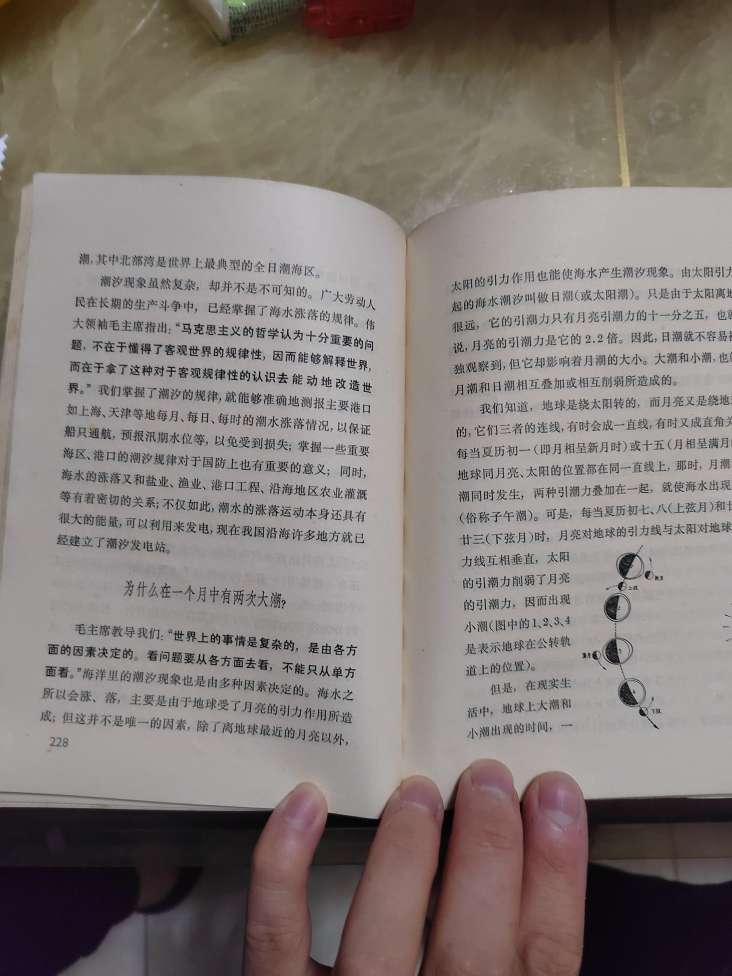 潮,其中北部湾是世界上最典型的全日潮海区。
潮汐现象虽然复杂，却并不是不可知的。广大劳动人
民在长期的生产斗争中，已经掌握了海水涨落的规律。伟
大领袖毛主席指出：“马克思主义的哲学认为十分重要的问
题，不在于懂得了客观世界的规律性，因而能够解释世界，
而在于拿了这种对于客观规律性的认识去能动地改造世
界。”我们掌握了潮汐的规律，就能够准确地测报主要港口
如上海、天津等地每月、每日、每时的潮水涨落情况，以保证
船只通航，预报汛期水位等，以免受到损失；掌握一些重要
海区、港口的潮汐规律对于国防上也有重要的意义；同时，
海水的涨落又和盐业、渔业、港口工程、沿海地区农业灌溉
等有着密切的关系；不仅如此，潮水的涨落运动本身还具有
很大的能量，可以利用来发电，现在我国沿海许多地方就已
经建立了潮汐发电站。
为什么在一个月中有两次大潮？
毛主席教导我们：“世界上的事情是复杂的，是由各方
面的因素决定的。看问题要从各方面去看，不能只从单方
面看。”海洋里的潮汐现象也是由多种因素决定的。海水之
所以会涨、落，主要是由于地球受了月亮的引力作用所造
成；但这并不是唯一的因素，除了离地球最近的月亮以外，
228
太阳的引力作用也能使海水产生潮汐现象。由太阳引力
起的海水潮汐叫做日潮(或太阳潮)。只是由于太阳离地
很远，它的引潮力只有月亮引潮力的十一分之五，也就
说，月亮的引潮力是它的2.2倍。因此，日潮就不容易被
独观察到，但它却影响着月潮的大小。大潮和小潮，也
月潮和日潮相互叠加或相互削弱所造成的。
我们知道，地球是绕太阳转的，而月亮又是绕地
的，它们三者的连线，有时会成一直线，有时又成直角关
每当夏历初一(即月相呈新月时)或十五(月相呈满月
地球同月亮、太阳的位置都在同一直线上，那时，月潮
潮同时发生，两种引潮力叠加在一起，就使海水出现
(俗称子午潮)。可是，每当夏历初七、八(上弦月)和廿
廿三(下弦月)时，月亮对地球的引力线与太阳对地球
力线互相垂直，太阳
的引潮力削弱了月亮
的引潮力，因而出现
小潮(图中的1、2、3、4
是表示地球在公转轨
道上的位置)。
但是，在现实生
活中，地球上大潮和
小潮出现的时间，一
上弦
满月
下弦